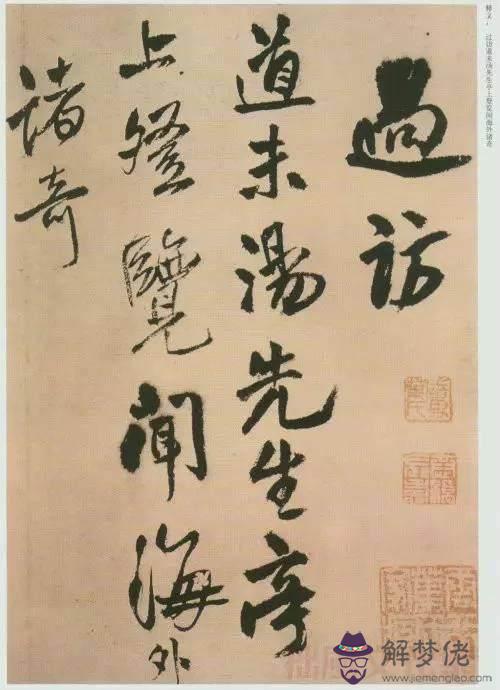 過訪
道未湯先生亭
上登覽聞海外
諸奇
释文：过访道未汤先生亭上登览闻海外诸奇
解梦佬
www.jiemenglao.com